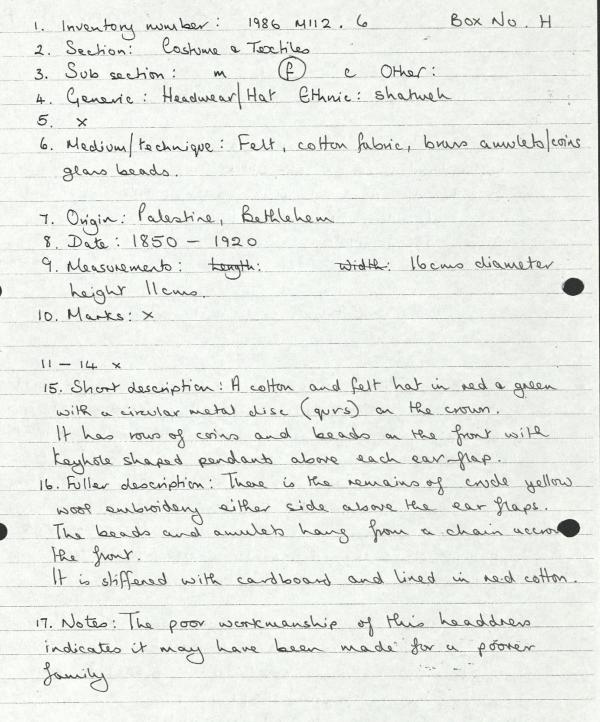 1. Inventory number: 1986 M112.6 Box No. H
2. Section: Costume & Textiles
3. Sub section: m f c Other:
4. Generic: Headwear/Hat Ethnic: shatweh
5. x
6. Medium/technique: Felt, cotton fabric, brass amulets/coins
glass beads.
7. Origin: Palestine, Bethlehem
8. Date: 1850 - 1920
9. Measurements: Length: Width: 16cms diameter
height 11cms.
10. Marks: x
11 - 14 x
15. Short description: A cotton and felt hat in red & green
with a circular metal disc (qurs) on the crown.
It has rows of coins and beads on the front with
keyhole shaped pendants above each ear-flap.
16. Fuller description: There is the remains of crude yellow
wool embroidery either side above the ear flaps.
The beads and amulets hang from a chain across
the front.
It is stiffened with cardboard and lined in red cotton.
17. Notes: The poor workmanship of this headdress
indicates it may have been made for a poorer
family